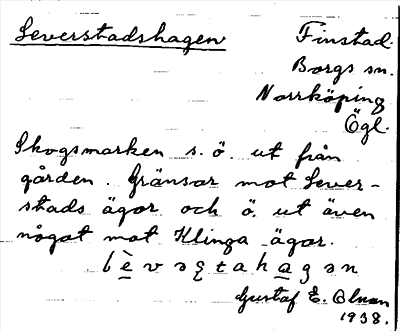 Severstadshagen
Finstad.
Borgs sn.
Norrköping
Ögl.
Skogsmarken s. ö. ut från
gården. Gränsar mot Sever-
stads ägor och ö. ut även
något mot Klinga ägor.
Gustaf E. Olman
1938.